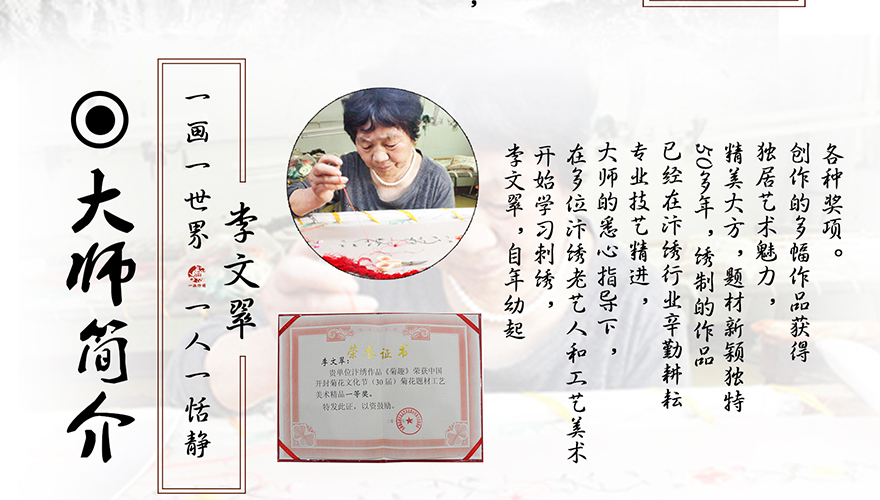 大师简介
一画一世界 一人一恬静
李文翠
荣誉证书
李文翠：
贵单位汴绣作品《菊趣》荣获中国
开封菊花文化节（30届）菊花题材工艺
美术精品一等奖。
特发此证，以资鼓励。
李文翠，自年幼起
开始学习刺绣，
在多位汴绣老艺人和工艺美术
大师的悉心指导下，
专业技艺精进，
已经在汴绣行业辛勤耕耘
50多年，绣制的作品
精美大方，题材新颖独特
独居艺术魅力，
创作的多幅作品获得
各种奖项。